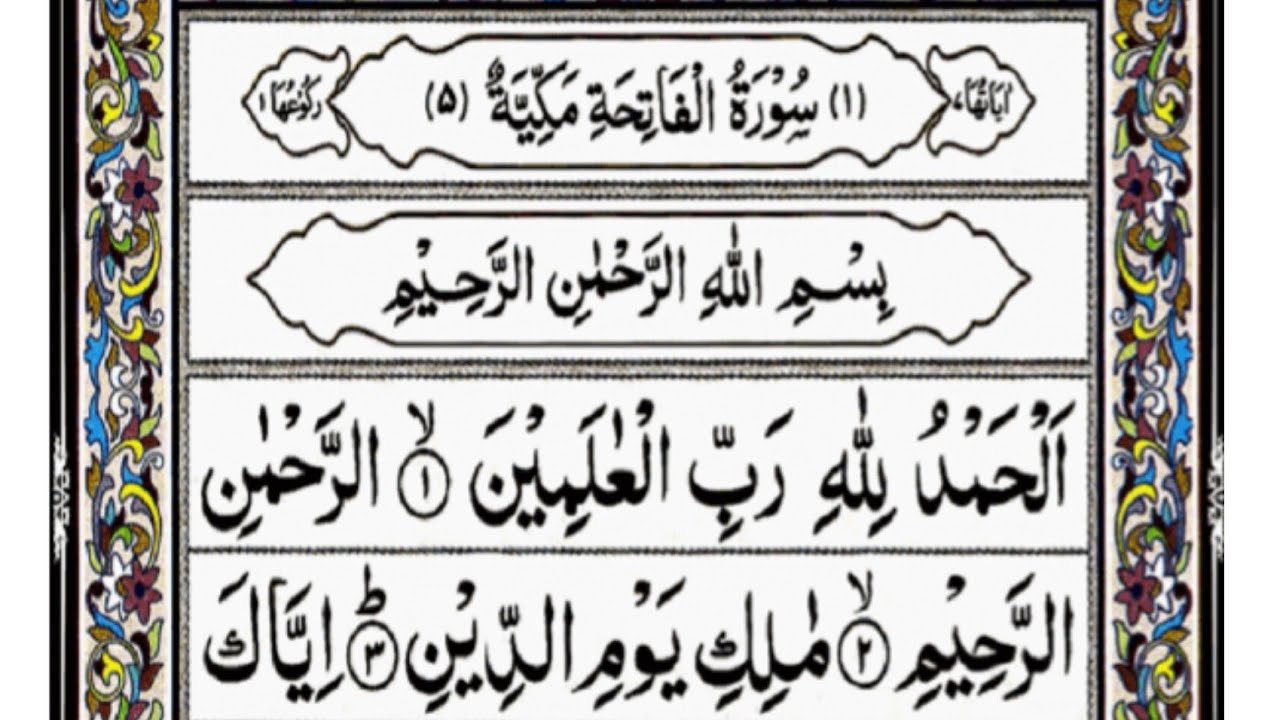 اٰیَاتُهَا ٧ (١) سُوْرَةُ الْفَاتِحَةِ مَكِّيَّةٌ (٥) رُكُوْعُهَا ١
بِسْمِ اللّٰهِ الرَّحْمٰنِ الرَّحِيْمِ
اَلْحَمْدُ لِلّٰهِ رَبِّ الْعٰلَمِيْنَ ۙ﴿١﴾ الرَّحْمٰنِ
الرَّحِيْمِ ۙ﴿٢﴾ مٰلِكِ يَوْمِ الدِّيْنِ ؕ﴿٣﴾ اِيَّاكَ